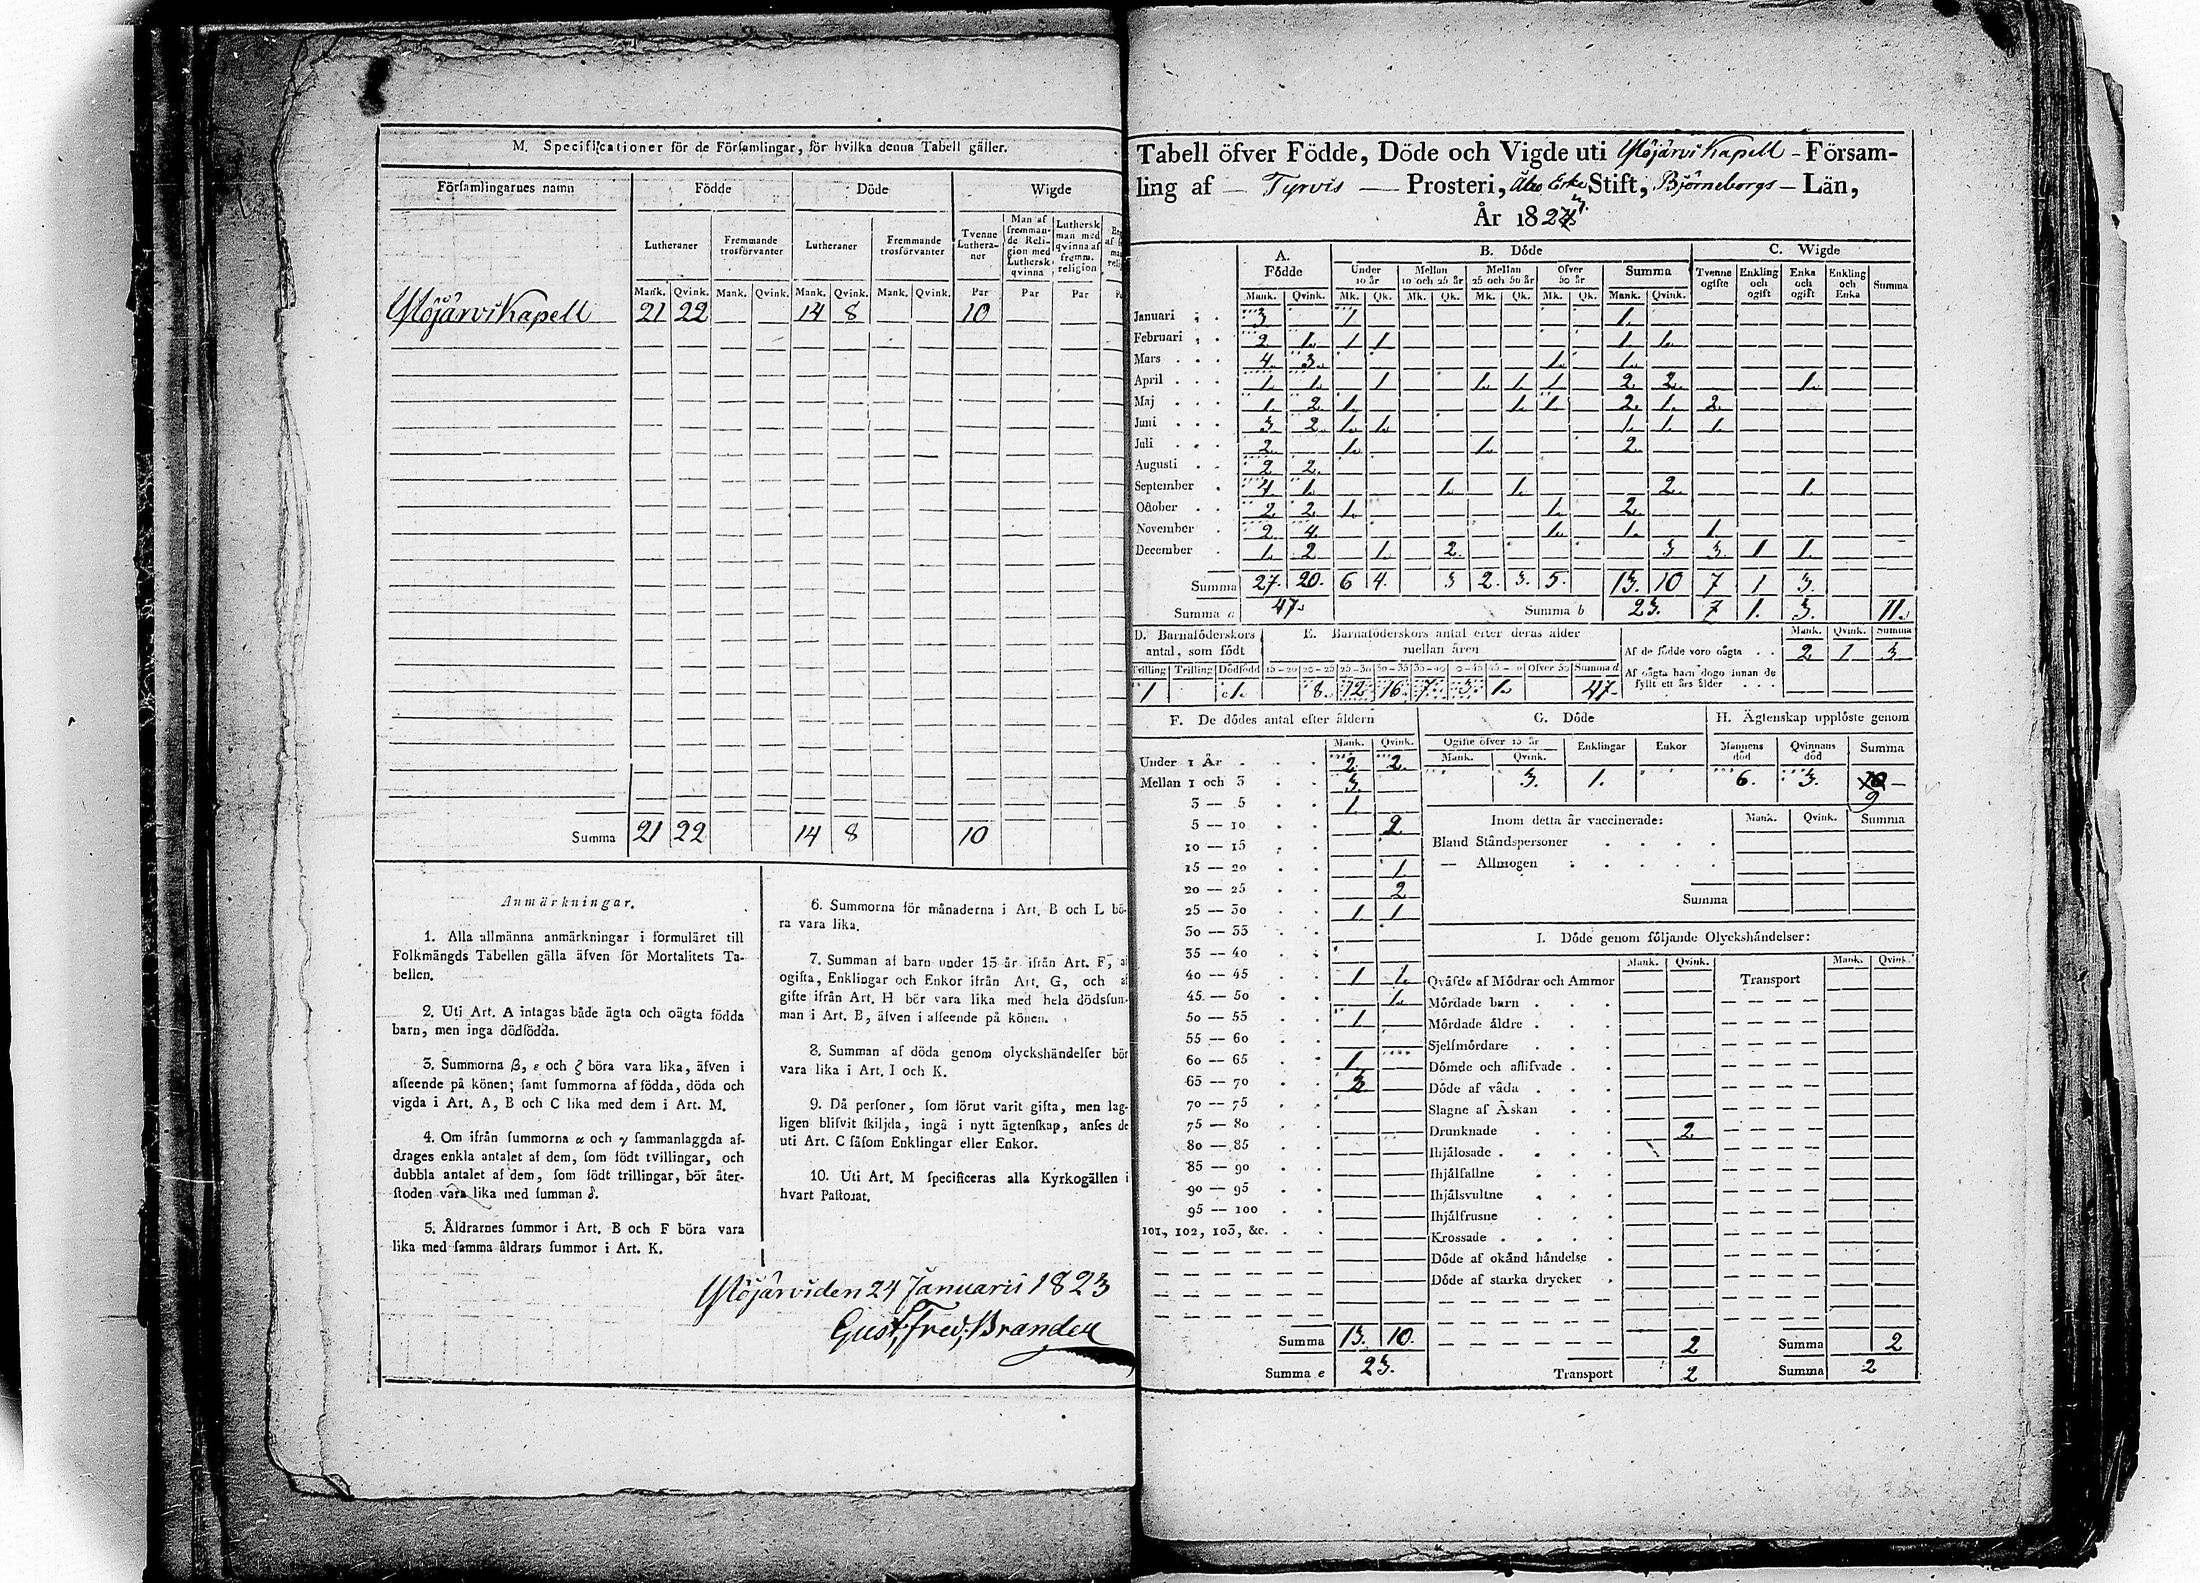 M. Specificationer för de Församlingar, för hvilka denna Tabell gäller.
Församlingarnes namn Födde Döde Wigde
Lutheraner Fremmande trosförvanter Lutheraner Fremmande trosförvanter Tvenne Lutheraner Man af fremmande Religion med Luthersk qvinna Luthersk man med qvinna af fremm. religion
Mank. Qvink. Mank. Qvink. Mank. Qvink. Mank. Qvink. Par Par Par
Ylöjärvi Kapell 21 22 — — 14 8 — — 10 — —
Summa 21 22 14 8 10
Anmärkningar.
1. Alla allmänna anmärkningar i formuläret till
Folkmängds Tabellen gälla äfven för Mortalitets Ta-
bellen.
2. Uti Art. A intagas både ägta och oägta födda
barn, men inga dödfödda.
3. Summorna β, ε och ζ böra vara lika, äfven i
affeende på könen; samt summorna af födda, döda och
vigda i Art. A, B och C lika med dem i Art. M.
4. Om ifrån summorna α och γ sammanlaggda af-
drages enkla antalet af dem, som födt tvillingar, och
dubbla antalet af dem, som födt trillingar, bör åter-
stoden vara lika med summan δ.
5. Åldrarnes summor i Art. B och F böra vara
lika med samma åldrars summor i Art. K.
6. Summorna för månaderna i Art. B och L bö-
ra vara lika.
7. Summan af barn under 15 år ifrån Art. F, a
ogifta, Enklingar och Enkor ifrån Art. G, och af
gifte ifrån Art. H bör vara lika med hela dödssum-
man i Art. B, äfven i affeende på könen.
8. Summan af döda genom olyckshändelser bör
vara lika i Art. I och K.
9. Då personer, som förut varit gifta, men lag-
ligen blifvit skiljda, ingå i nytt ägtenskap, anses de
uti Art. C såsom Enklingar eller Enkor.
10. Uti Art. M specificeras alla Kyrkogällen i
hvart Pastorat.
Ylöjärvi den 24 Januarii 1823
Gust. Fred. Brander
Tabell öfver Födde, Döde och Vigde uti Ylöjärvi Kapell - Försam-
ling af — Tyrvis — Prosteri, Åbo Erke Stift, Björneborgs — Län,
År 1823
A. Födde B. Döde C. Wigde
Under 10 år Mellan 10 och 25 år Mellan 25 och 50 år Öfver 50 år Summa Tvenne ogifte Enkling och ogift Enka och ogift Enkling och Enka Summa
Mank. Qvink. Mk. Qk. Mk. Qk. Mk. Qk. Mk. Qk. Mank. Qvink.
Januari 3 — 1 — — — — — — — 1. —
Februari 2. 1. 1 1 — — — — — — 1. 1.
Mars 4. 3. — — — — — — 1. — 1. —
April 1. 1. — 1 — — 1. 1. 1 — 2. 2. — — 1.
Maj 1. 2. 1. — — — — 1. 1. — 2. 1. 2.
Juni 3. 2. 1. 1. — — — — — — 1. 1. 1.
Juli 2. — 1. — — — 1. — — — 2. —
Augusti 2 2.
September 4 1. — — — 1. — 1. — — — 2. — — 1.
October 2. 2. 1. — — — — — 1. — 2. —
November 2 4. — — — — — — 1. — 1. — 1.
December 1. 2 — 1. — 2. — — — — — 3 3. 1 1.
Summa 27. 20. 6 4. 3 2. 3. 5. 13. 10 7 1 3.
Summa a 47. Summa b 23. 7 1. 3. 11.
D. Barnaföderskors antal, som födt E. Barnaföderskors antal efter deras ålder mellan åren Mank. Qvink. Summa
Af de födde voro oägta 2 1 3
Tvilling Trilling Dödfödd 15—20 20—25 25—30 30—35 35—40 0—45 45— 0 Öfver 50 Summa d
Af oägta barn dogo innan de fyllt ett års ålder
1 c 1. 8. 12. 16. 7. 3. 1. 47.
F. De dödes antal efter åldern
Mank. Qvink.
Under 1 År 2. 2.
Mellan 1 och 3 3. —
3 — 5 1. —
5 — 10 — 2.
10 — 15
15 — 20 — 1
20 — 25 — 2
25 — 30 1. 1
30 — 35
35 — 40
40 — 45 1 1.
45 — 50 — 1.
50 — 55 1 —
55 — 60
60 — 65 1.
65 — 70 3 —
70 — 75
75 — 80
80 — 85
85 — 90
90 — 95
95 — 100
101, 102, 103, &c.
Summa 13. 10.
Summa e 23.
G. Döde
Ogifte öfver 15 år Enklingar Enkor
Mank. Qvink.
3. 1.
H. Ägtenskap upplöste genom
Mannens död Qvinnans död Summa
6. 3. 10
9
Inom detta år vaccinerade: Mank. Qvink. Summa
Bland Ståndspersoner
— Allmogen
Summa
I. Döde genom följande Olyckshändelser:
Mank. Qvink. Transport Mank. Qvink.
Qväfde af Mödrar och Ammor
Mördade barn
Mördade äldre
Sjelfmördare
Dömde och aflifvade
Döde af våda
Slagne af Åskan
Drunknade 2.
Ihjälosade
Ihjälfallne
Ihjälsvultne
Ihjälfrusne
Krossade
Döde af okänd händelse
Döde af starka drycker
2 Summa 2
Transport 2 Summa 2